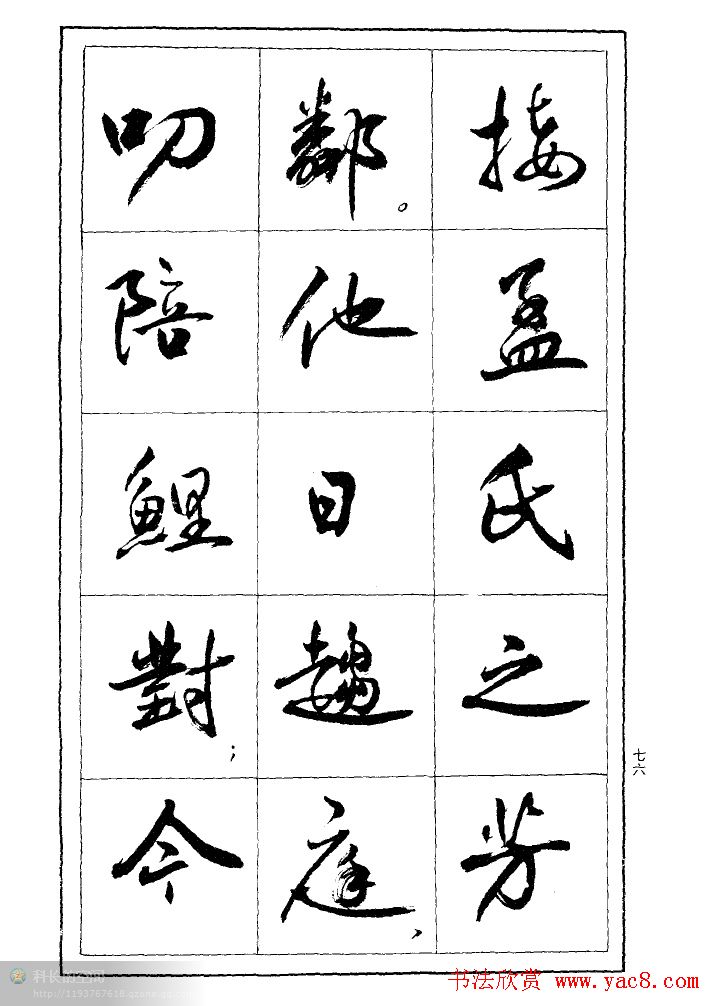 接孟氏之芳
鄰。他日趨庭，
叨陪鯉對；今
七六
科长的空间
http://1193767618.qzone.qq.com
书法欣赏 www.yac8.com